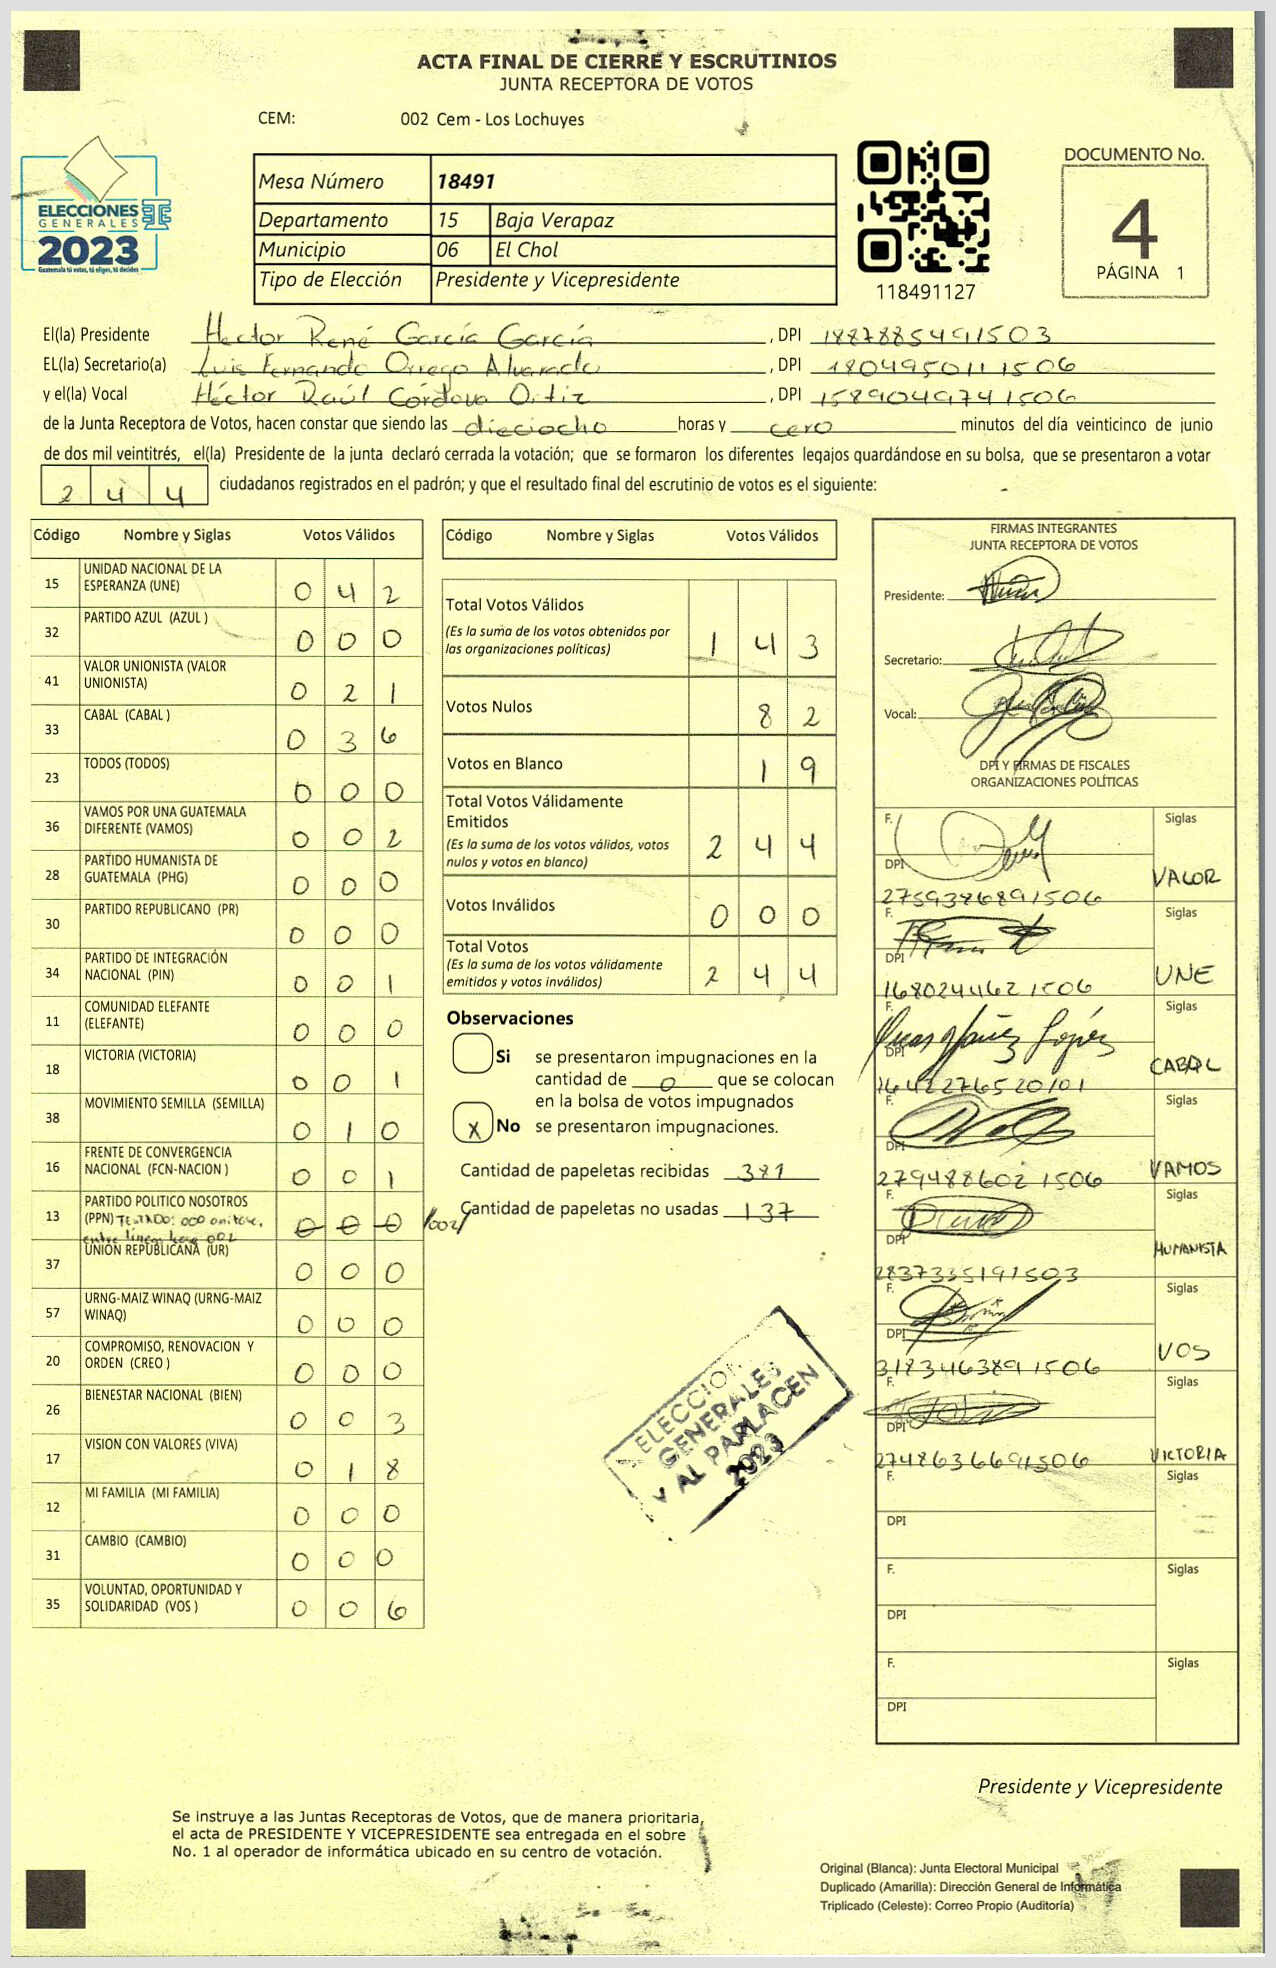 ACTA FINAL DE CIERRE Y ESCRUTINIOS
JUNTA RECEPTORA DE VOTOS
CEM: 002 Cem - Los Lochuyes
ELECCIONES
GENERALES
2023
Guatemala tú votas, tú eliges, tú decides
Mesa Número 18491
Departamento 15 Baja Verapaz
Municipio 06 El Chol
Tipo de Elección Presidente y Vicepresidente
118491127
DOCUMENTO No.
4
PÁGINA 1
El(la) Presidente Hector René García García, DPI 1887885491503
EL(la) Secretario(a) Luis Fernando Orrego Alvarado, DPI 1804950111506
y el(la) Vocal Héctor Raúl Córdova Ortiz, DPI 1589049741506
de la Junta Receptora de Votos, hacen constar que siendo las dieciocho horas y cero minutos del día veinticinco de junio
de dos mil veintitrés, el(la) Presidente de la junta declaró cerrada la votación; que se formaron los diferentes legajos guardándose en su bolsa, que se presentaron a votar
2 4 4 ciudadanos registrados en el padrón; y que el resultado final del escrutinio de votos es el siguiente:
Código Nombre y Siglas Votos Válidos
15 UNIDAD NACIONAL DE LA ESPERANZA (UNE) 0 4 2
32 PARTIDO AZUL (AZUL ) 0 0 0
41 VALOR UNIONISTA (VALOR UNIONISTA) 0 2 1
33 CABAL (CABAL ) 0 3 6
23 TODOS (TODOS) 0 0 0
36 VAMOS POR UNA GUATEMALA DIFERENTE (VAMOS) 0 0 2
28 PARTIDO HUMANISTA DE GUATEMALA (PHG) 0 0 0
30 PARTIDO REPUBLICANO (PR) 0 0 0
34 PARTIDO DE INTEGRACIÓN NACIONAL (PIN) 0 0 1
11 COMUNIDAD ELEFANTE (ELEFANTE) 0 0 0
18 VICTORIA (VICTORIA) 0 0 1
38 MOVIMIENTO SEMILLA (SEMILLA) 0 1 0
16 FRENTE DE CONVERGENCIA NACIONAL (FCN-NACION ) 0 0 1
13 PARTIDO POLITICO NOSOTROS (PPN) TESTADO: 000 omítase, entre líneas léase 002 0 0 0 /002/
37 UNION REPUBLICANA (UR) 0 0 0
57 URNG-MAIZ WINAQ (URNG-MAIZ WINAQ) 0 0 0
20 COMPROMISO, RENOVACION Y ORDEN (CREO ) 0 0 0
26 BIENESTAR NACIONAL (BIEN) 0 0 3
17 VISION CON VALORES (VIVA) 0 1 8
12 MI FAMILIA (MI FAMILIA) 0 0 0
31 CAMBIO (CAMBIO) 0 0 0
35 VOLUNTAD, OPORTUNIDAD Y SOLIDARIDAD (VOS ) 0 0 6
Código Nombre y Siglas Votos Válidos
Total Votos Válidos 1 4 3
(Es la suma de los votos obtenidos por
las organizaciones políticas)
Votos Nulos 8 2
Votos en Blanco 1 9
Total Votos Válidamente
Emitidos 2 4 4
(Es la suma de los votos válidos, votos
nulos y votos en blanco)
Votos Inválidos 0 0 0
Total Votos 2 4 4
(Es la suma de los votos válidamente
emitidos y votos inválidos)
Observaciones
Si se presentaron impugnaciones en la
cantidad de 0 que se colocan
en la bolsa de votos impugnados
X No se presentaron impugnaciones.
Cantidad de papeletas recibidas 381
Cantidad de papeletas no usadas 137
ELECCIONES
GENERALES
Y AL PARLACEN
2023
FIRMAS INTEGRANTES
JUNTA RECEPTORA DE VOTOS
Presidente:
Secretario:
Vocal:
DPI Y FIRMAS DE FISCALES
ORGANIZACIONES POLÍTICAS
F. Siglas
DPI 2759386891506 VALOR
F. Siglas
DPI 1680244621506 UNE
F. Siglas
DPI 1642276520101 CABAL
F. Siglas
DPI 2794886021506 VAMOS
F. Siglas
DPI 2837335191503 HUMANISTA
F. Siglas
DPI 3183463891506 VOS
F. Siglas
DPI 2748636691506 VICTORIA
F. Siglas
DPI
F. Siglas
DPI
F. Siglas
DPI
Presidente y Vicepresidente
Se instruye a las Juntas Receptoras de Votos, que de manera prioritaria,
el acta de PRESIDENTE Y VICEPRESIDENTE sea entregada en el sobre
No. 1 al operador de informática ubicado en su centro de votación.
Original (Blanca): Junta Electoral Municipal
Duplicado (Amarilla): Dirección General de Informática
Triplicado (Celeste): Correo Propio (Auditoría)